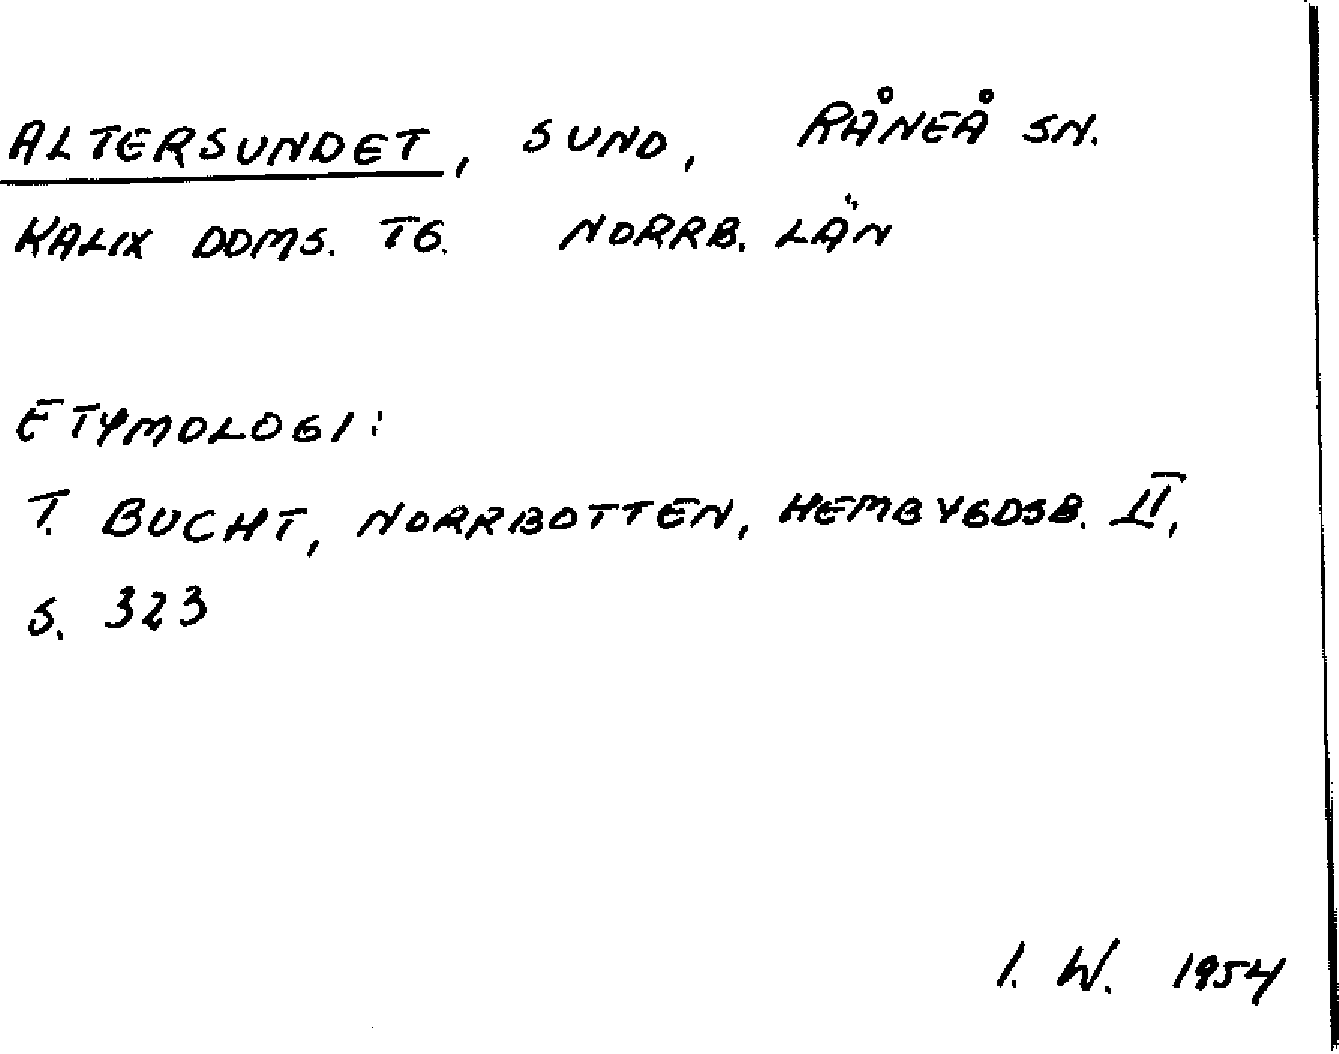 ALTERSUNDET, SUND, RÅNEÅ SN.
KALIX DOMS. TG. NORRB. LÄN
ETYMOLOGI:
T. BUCHT, NORRBOTTEN, HEMBYGDSB. II,
S. 323
I. W. 1954